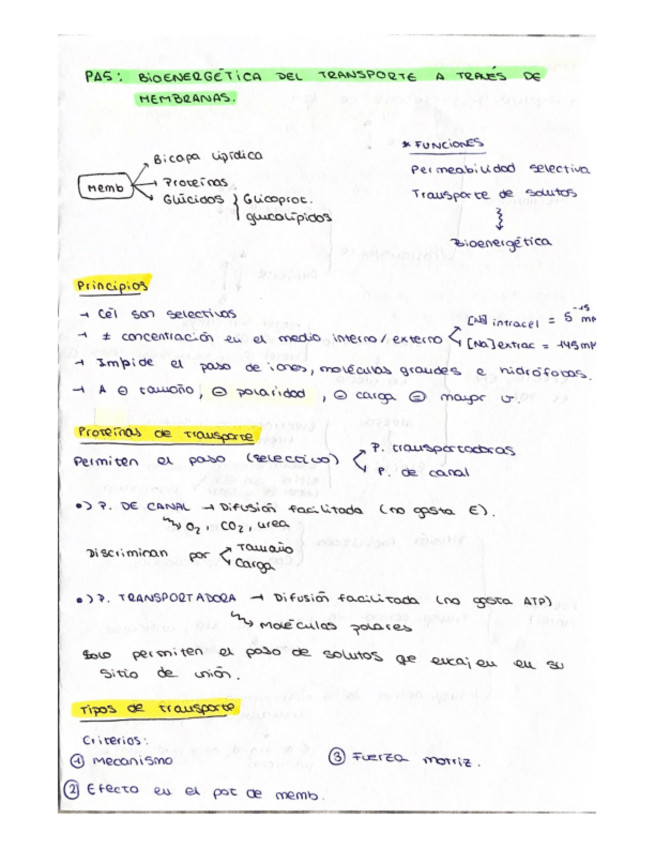 PA5: BIOENERGÉTICA DEL TRANSPORTE A TRAVÉS DE
MEMBRANAS.
Memb
Bicapa lipídica
Proteínas
Glúcidos } Glicoprot.
glucolípidos
* FUNCIONES
Permeabilidad selectiva
Transporte de solutos
Bioenergética
Principios
→ Cél son selectivas
→ ≠ concentración en el medio interno/externo
[Na] intracel = 5-15 mM
[Na] extrac = 145 mM
→ Impide el paso de iones, moléculas grandes e hidrófobas.
→ A ⊖ tamaño, ⊖ polaridad, ⊖ carga ⊜ mayor v.
Proteínas de transporte
Permiten el paso (selectivo)
P. transportadoras
P. de canal
•) P. DE CANAL → Difusión facilitada (no gasta E).
O2, CO2, urea
Discriminan por
Tamaño
Carga
•) P. TRANSPORTADORA → Difusión facilitada (no gasta ATP)
Moléculas polares
Solo permiten el paso de solutos qe encajen en su
sitio de unión.
Tipos de transporte
Criterios:
① Mecanismo
③ Fuerza motriz.
② Efecto en el pot de memb.